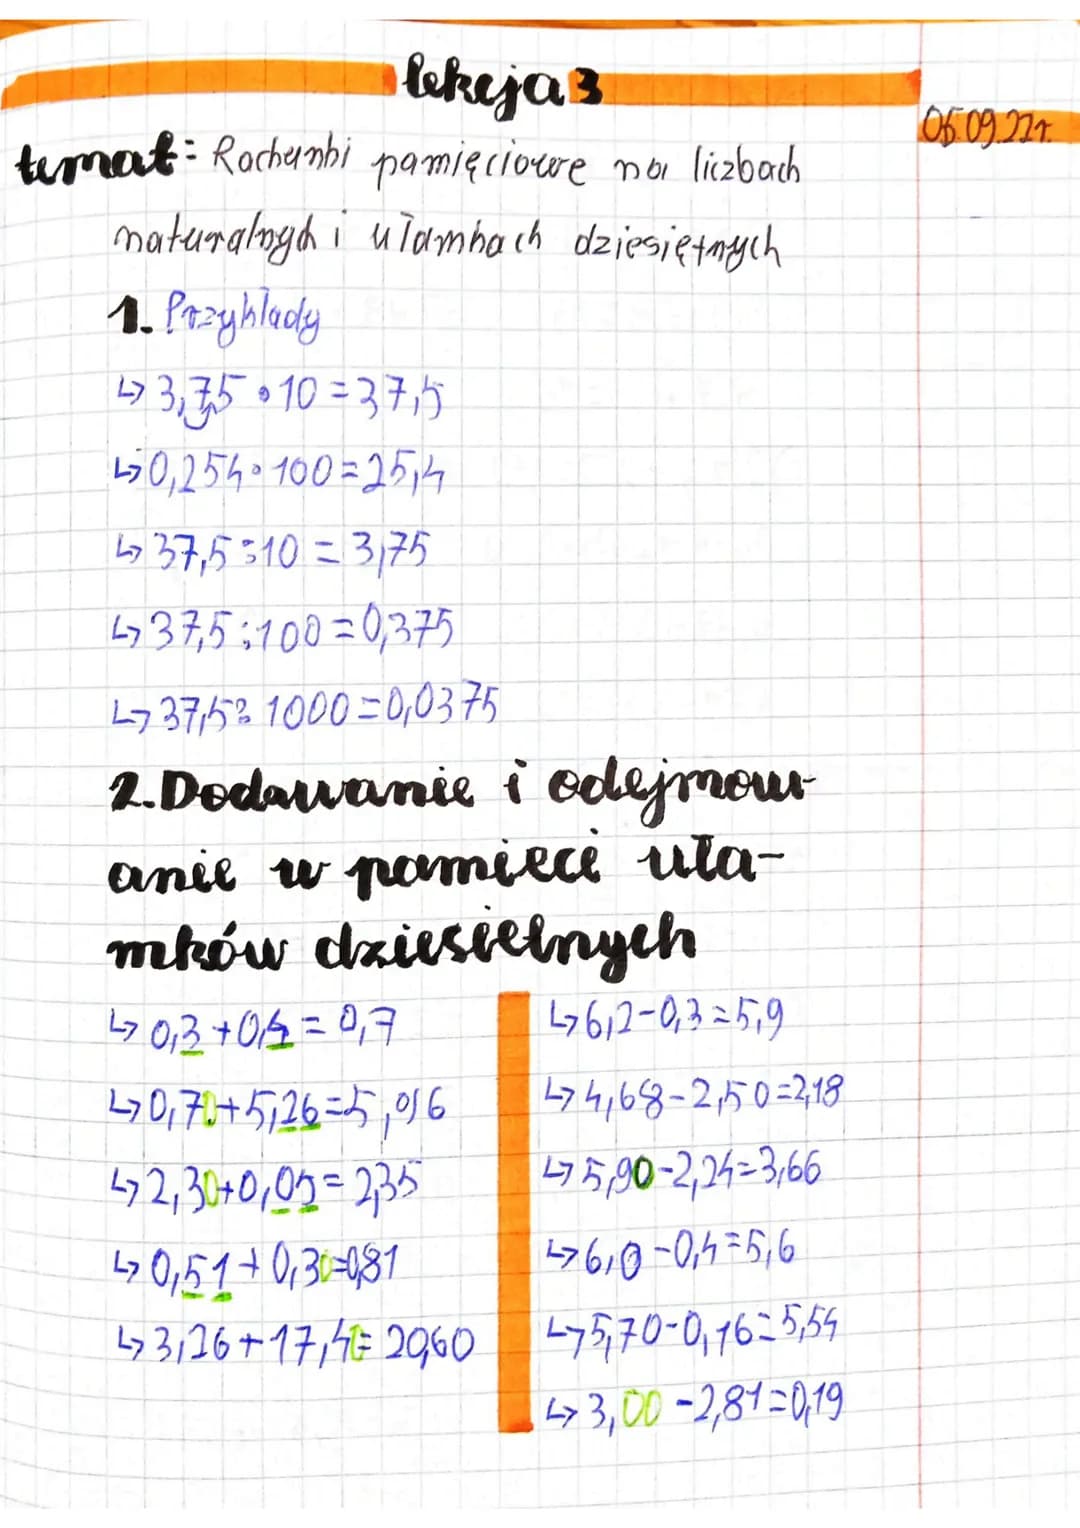 lekcja 3
06.09.22r.
temat: Rachunki pamięciowe na liczbach
naturalnych i ułamkach dziesiętnych
1. Przykłady
↳ 3,75 · 10 = 37,5
↳ 0,254 · 100 = 25,4
↳ 37,5 : 10 = 3,75
↳ 37,5 : 100 = 0,375
↳ 37,5 : 1000 = 0,0375
2. Dodawanie i odejmow-
anie w pamięci uła-
mków dziesiętnych
↳ 0,3 + 0,4 = 0,7
↳ 0,70 + 5,26 = 5,96
↳ 2,30 + 0,05 = 2,35
↳ 0,51 + 0,30 = 0,81
↳ 3,26 + 17,40 = 20,60
↳ 6,2 - 0,3 = 5,9
↳ 4,68 - 2,50 = 2,18
↳ 5,90 - 2,24 = 3,66
↳ 6,0 - 0,4 = 5,6
↳ 5,70 - 0,16 = 5,54
↳ 3,00 - 2,81 = 0,19